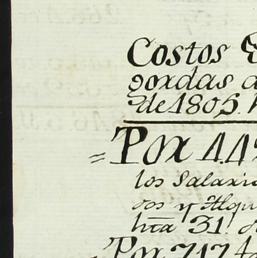 Costos
gordas
de 1805.
= Por 4.4
los Salario
os y Alqu
hta 31.
= Por 717